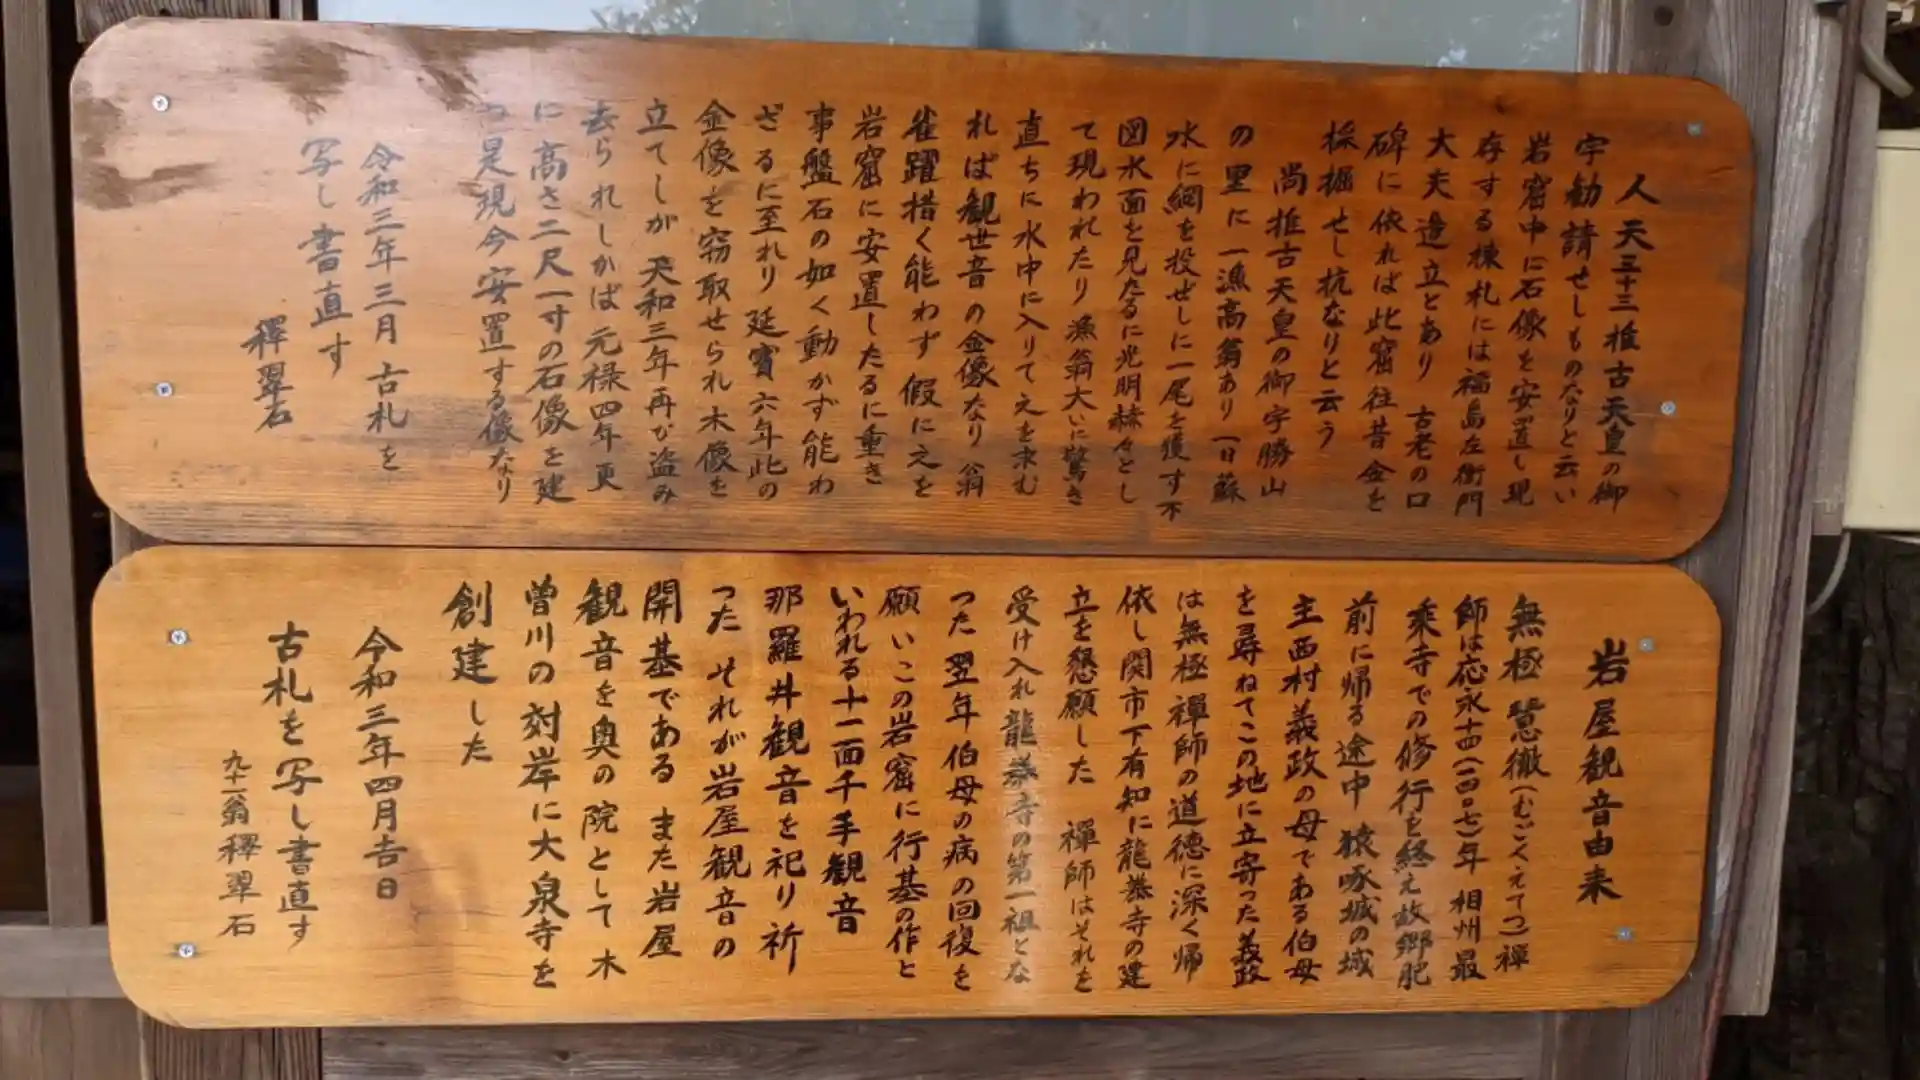 人天三十三推古天皇の御
宇勧請せしものなりと云い
岩窟中に石像を安置し現
存する棟札には福島左衛門
大夫造立とあり 古老の口
碑に依れば此窟往昔金を
採掘せし坑なりと云う
尚推古天皇の御宇勝山
の里に一漁高翁あり一日蘇
水に網を投ぜしに一尾を獲す不
図水面を見たるに光明赫々とし
て現われたり漁翁大いに驚き
直ちに水中に入りて之を求む
れば観世音の金像なり 翁
雀躍措く能わず假に之を
岩窟に安置したるに重き
事盤石の如く動かず能わ
ざるに至れり 延寳六年此の
金像を窃取せられ木像を
立てしが 天和三年再び盗み
去られしかば元禄四年更
に高さ二尺一寸の石像を建
つ是現今安置する像なり
令和三年三月 古札を
写し書直す
釋翠石
岩屋観音由来
無極慧徹(むごくえてつ)禅
師は応永十四(一四〇七)年 相州最
乗寺での修行を終え故郷肥
前に帰る途中 猿啄城の城
主西村義政の母である伯母
を尋ねてこの地に立寄った義政
は無極禅師の道徳に深く帰
依し関市下有知に龍泰寺の建
立を懇願した 禅師はそれを
受け入れ龍泰寺の第一祖とな
った翌年伯母の病の回復を
願いこの岩窟に行基の作と
いわれる十一面千手観音
那羅井観音を祀り祈
った それが岩屋観音の
開基である また岩屋
観音を奥の院として木
曽川の対岸に大泉寺を
創建した
令和三年四月吉日
古札を写し書直す
九十一翁釋翠石